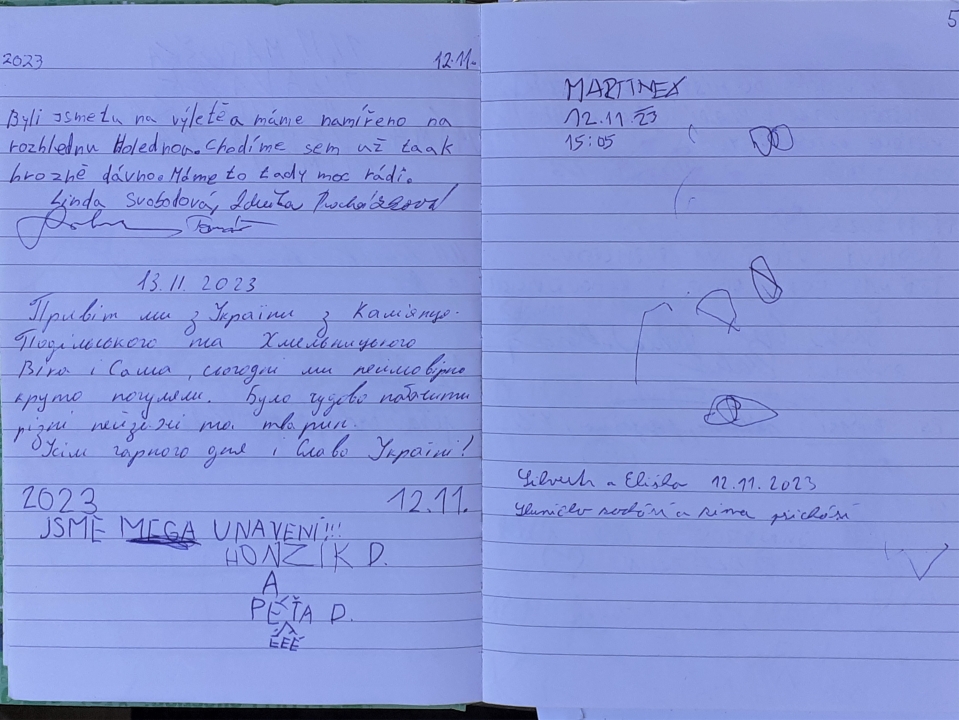 2023 12.11.
Byli jsme tu na výletě a máme namířeno na
rozhlednu Holednou. Chodíme sem už taak
hrozně dávno. Máme to tady moc rádi.
Linda Svobodová, Zdeňka Procházková
Tomáš
13.11.2023
Привіт ми з України з Камʼянця-
Подільського та Хмельницького
Віка і Саша, сьогодні ми неймовірно
круто погуляли. Було чудово побачити
різні пейзажі та тварин.
Усім гарного дня і Слава Україні!
2023 12.11.
JSME MEGA UNAVENÍ!!!
HONZÍK D.
A
PÉŤA D.
ÉÉÉ
5
MARTINEX
12.11.23
15:05
a Eliška 12.11.2023
Sluníčko a zima přichází